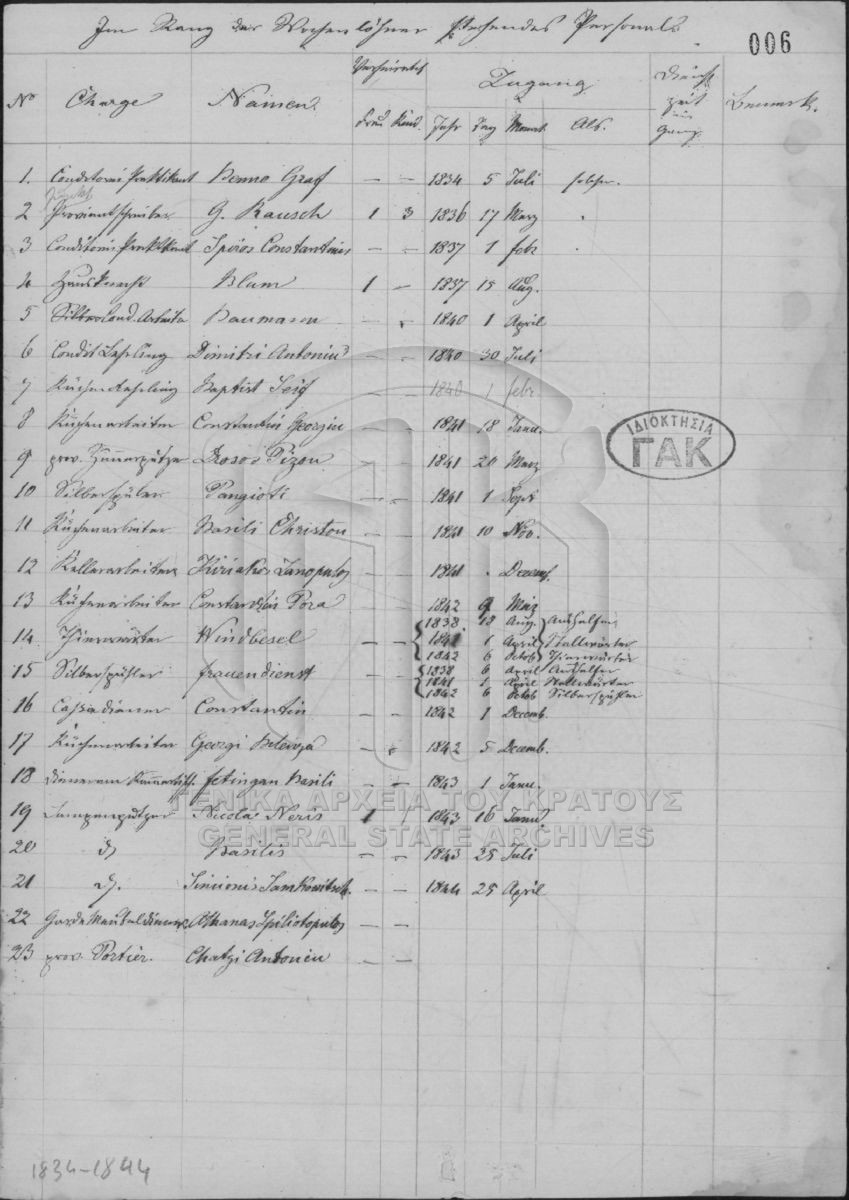 Im Rang der Wochenlöhner stehendes Personals
006
No Charge Namen Verheiratet Zugang Dienstzeit Bemerk.
Frau Kind. Jahr Tag Monat. Als. ganz
1. Conditorei Praktikant Benno Graf — — 1834 5 Juli
2 Proviantschreiber G. Rausch 1 3 1836 17 Marz
3 Conditorei Praktikant Spiros Constantinis — — 1837 1 febr
4 Hausknecht Blum 1 — 1837 15 Aug.
5 Baumann — 1840 1 April
6 Condit Lehrling Dimitri Antoniu — — 1840 30 Juli
7 Küchen Lehrling Baptist 1840 1 febr.
8 Küchenarbeiter Constantin Georgiu — 1841 18 Janu.
9 prov. 1841 20 Marz
10 Silberspüler Pangioti — 1841 1 Sept
11 Küchenarbeiter Basili Christou — — 1841 10 Nov.
12 Kellerarbeiter Kiriakos Zanopulos — — 1841 Decemb.
13 Küchenarbeiter Constantin — — 1842 9 Marz
1838 18 Aug. Aushelfer
14 Thierwärter Windbesel — — 1841 1 April Stallwärter
1842 6 Octob Thierwärter
1838 6 April Aushelfer
15 Silberspühler Frauendienst 1841 1 April Stallwärter
1842 6 Octob Silberspühler
16 Cassadiener Constantin — — 1842 1 Decemb.
17 Küchenarbeiter Georgi — 1842 5 Decemb.
18 Basili — — 1843 1 Janu.
19 Lampenputzer Nicola Neris 1 1843 16 Janu
20 d Basilis — — 1843 25 Juli
21 d. — — 1844 25 April
22 Athanas Spiliotopulos — —
23 prov. Portier. Chatzi Antoniu — —
ΙΔΙΟΚΤΗΣΙΑ
ΓΑΚ
ΓΕΝΙΚΑ ΑΡΧΕΙΑ ΤΟΥ ΚΡΑΤΟΥΣ
GENERAL STATE ARCHIVES
1834-1844